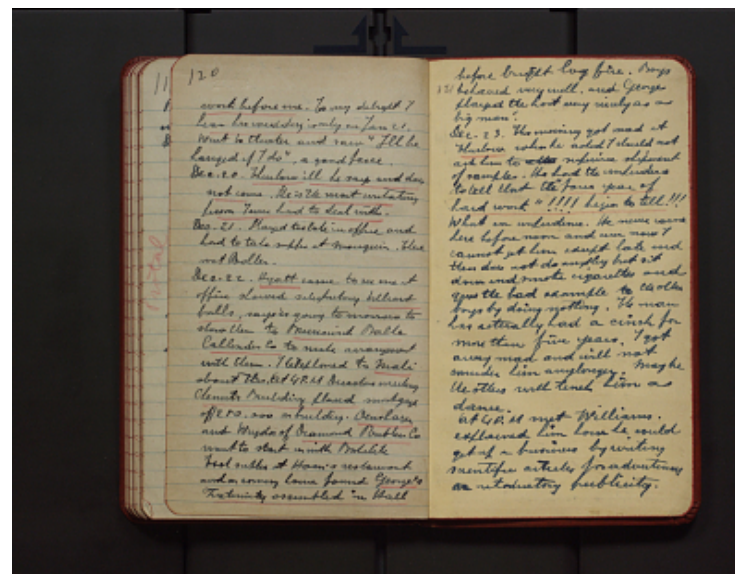 120
work before me. To my delight I
hear his wedding is only on Jan 21.
Went to theater and saw "I'll be
hanged if I do" a good farce.
Dec. 20. Thurlow ill he says and does
not come. He is the most irritating
person I ever had to deal with.
Dec. 21. Stayed too late in office and
had to take supper at Mouquin. There
met
Dec. 22. Hyatt came to see me at
office showed billiard
balls, says is going to morrow to
show them to Brunswick Balke
Collender Co to make arrangement
with them. I telephoned to
about this. At 4 P.M Directors meeting
Chemists Building placed mortgage
of 250.000 on building.
and of Diamond Rubber Co
want to start with Bakelite
Had supper at restaurant
and on coming home found George's
Fraternity assembled in Hall
before bright log fire. Boys
121 behaved very well. and George
played the host very nicely as a
big man.
Dec. 23. This morning got mad at
Thurlow when he said I should not
ask him to shipment
of samples. He had the impudence
to tell that the four years of
hard work" !!!! begin to tell!!!
What an impudence. He never came
here before noon and even now I
cannot get him except late and
then does not do anything but sit
down and smoke cigarettes and
gives the bad example to the other
boys by doing nothing. The man
has actually had a cinch for
more than five years. I got
away mad and will not
consider him any longer. Maybe
the others will teach him a
dance.
At 4 P.M met Williams.
explained him how he could
get up a business by writing
scientific articles for advertising
as introductory publicity.